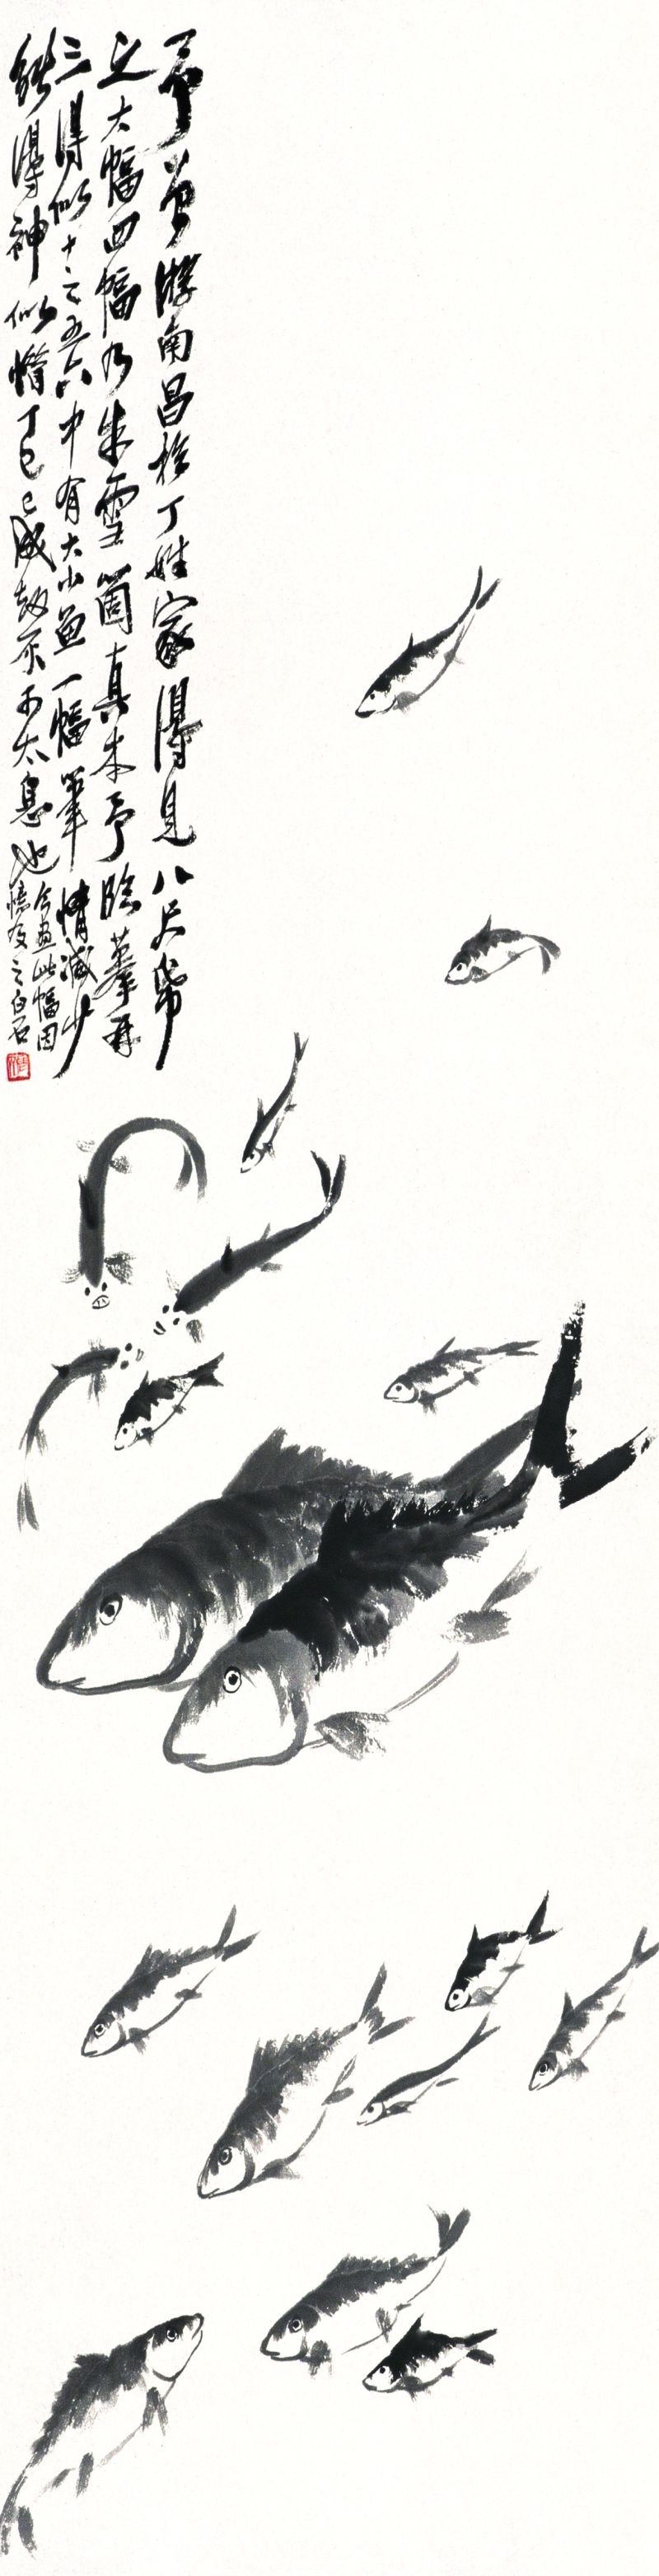 予曾游南昌於丁姓家得見八尺紙
之大幅四幅乃朱雪箇真本予臨摹再
三得似十之五六中有大小魚一幅筆情減少
能得神似惜丁巳已成劫灰可太息也
今畫此幅因
憶及之白石